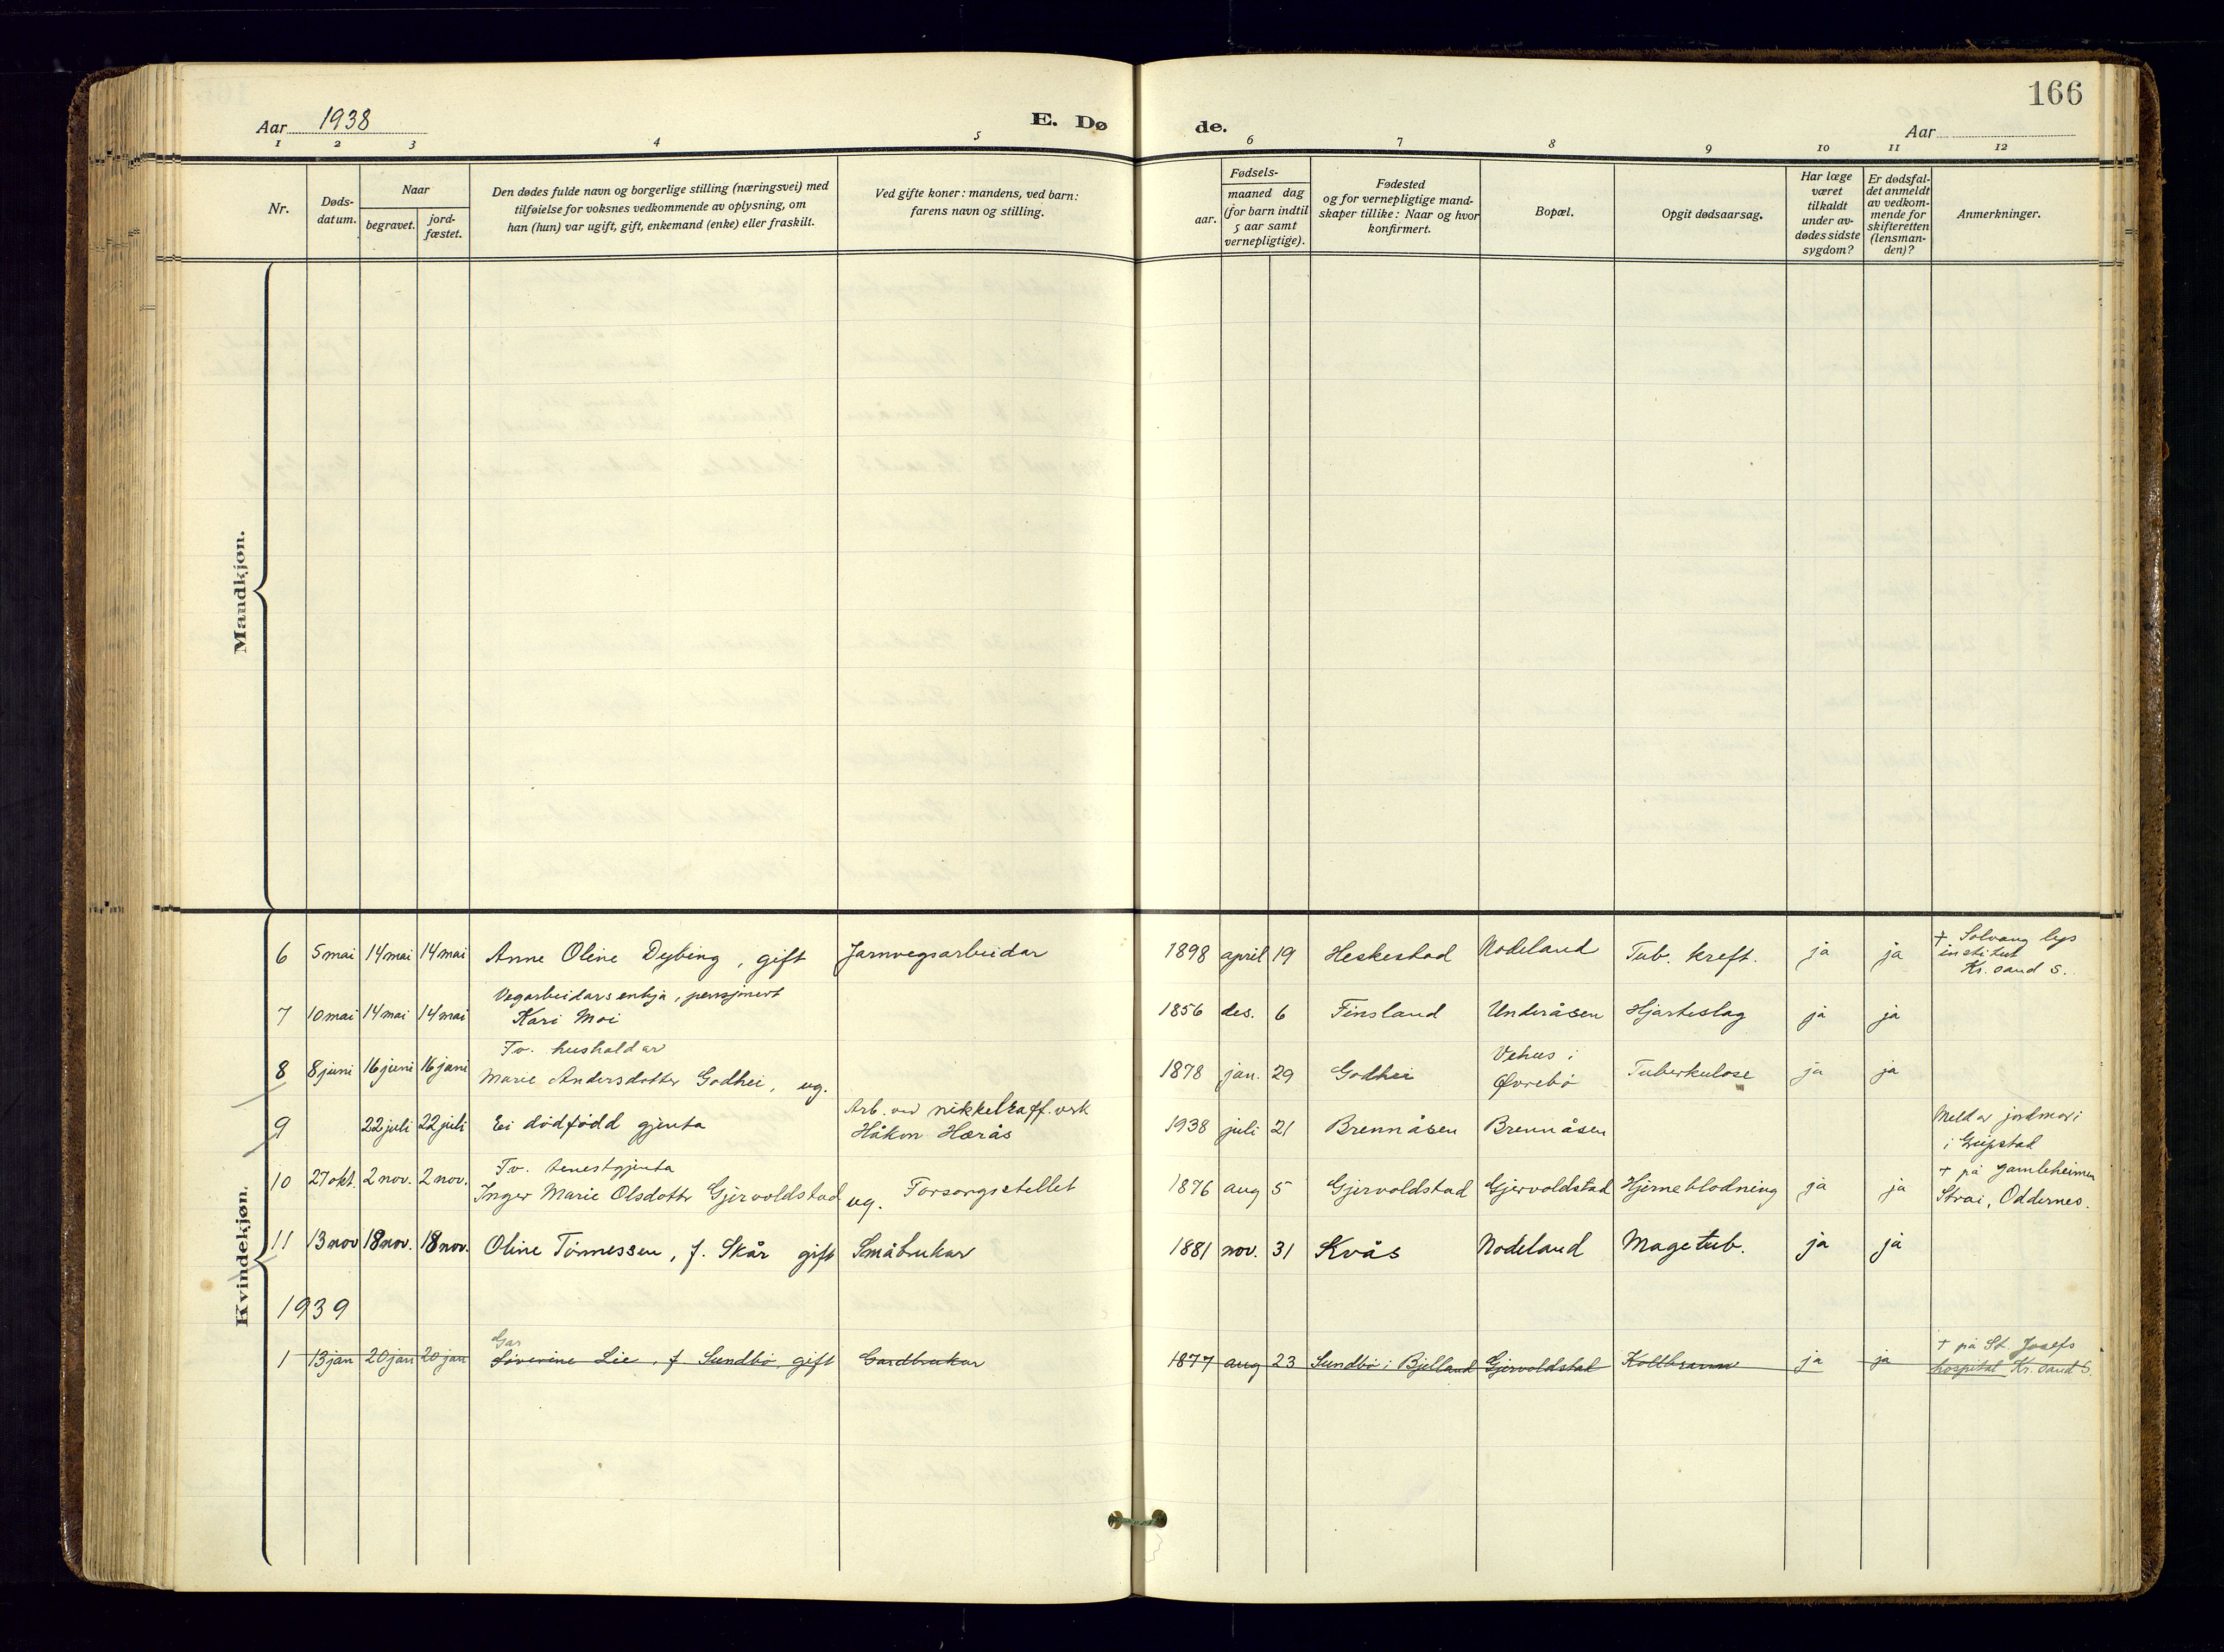 166
Aar 1938
E. Dø
de.
Aar
1 2 3 4 5 6 7 8 9 10 11 12
Nr.
Døds-
datum.
Naar
begravet.
jord-
fæstet.
Den dødes fulde navn og borgerlige stilling (næringsvei) med
tilføielse for voksnes vedkommende av oplysning, om
han (hun) var ugift, gift, enkemand (enke) eller fraskilt.
Ved gifte koner: mandens, ved barn:
farens navn og stilling.
Fødsels-
aar.
maaned dag
(for barn indtil
5 aar samt
vernepligtige).
Fødested
og for vernepligtige mand-
skaper tillike: Naar og hvor
konfirmert.
Bopæl.
Opgit dødsaarsag.
Har læge
været
tilkaldt
under av-
dødes sidste
sygdom?
Er dødsfal-
det anmeldt
av vedkom-
mende for
skifteretten
(lensman-
den)?
Anmerkninger.
Mandkjøn.
Kvindekjøn.
6 5 mai 14 mai 14 mai Anne Oline Dybing, gift Jarnvegsarbeidar 1898 april 19 Heskestad Nodeland Tub. kreft. ja ja † Solvang lys
institut
Kr. sand S.
Vegarbeidarsenkja, pensjonert
7 10 mai 14 mai 14 mai Kari Moi 1856 des. 6 Finsland Underåsen Hjarteslag ja ja
Fv. hushaldar
8 8 juni 16 juni 16 juni Marie Andersdotter Godhei, ug. 1878 jan. 29 Godhei Vehus i
Øvrebö Tuberkulose ja ja
Arb. ved nikkelraff. verk
9 22 juli 22 juli Ei dödfödd gjenta Håkon Hærås 1938 juli 21 Brennåsen Brennåsen Meld av jordmor i
i Greipstad
Fv. tenestgjenta
10 27 okt. 2 nov. 2 nov. Inger Marie Olsdotter Gjervoldstad ug. Forsorgsstellet 1876 aug 5 Gjervoldstad Gjervoldstad Hjerneblodning ja ja † på gamleheimen
Strai, Oddernes.
11 13 nov 18 nov. 18 nov. Oline Tönnessen, f. Skår gift Småbrukar 1881 nov. 31 Kvås Nodeland Magetub. ja ja
1939
Gar
1 13 jan 20 jan 20 jan Severine Lie, f Sundbö, gift Gardbrukar 1877 aug 23 Sundbö i Bjelland Gjervoldstad Koldbrann ja ja † på St. Josefs
hospital Kr. sand S.